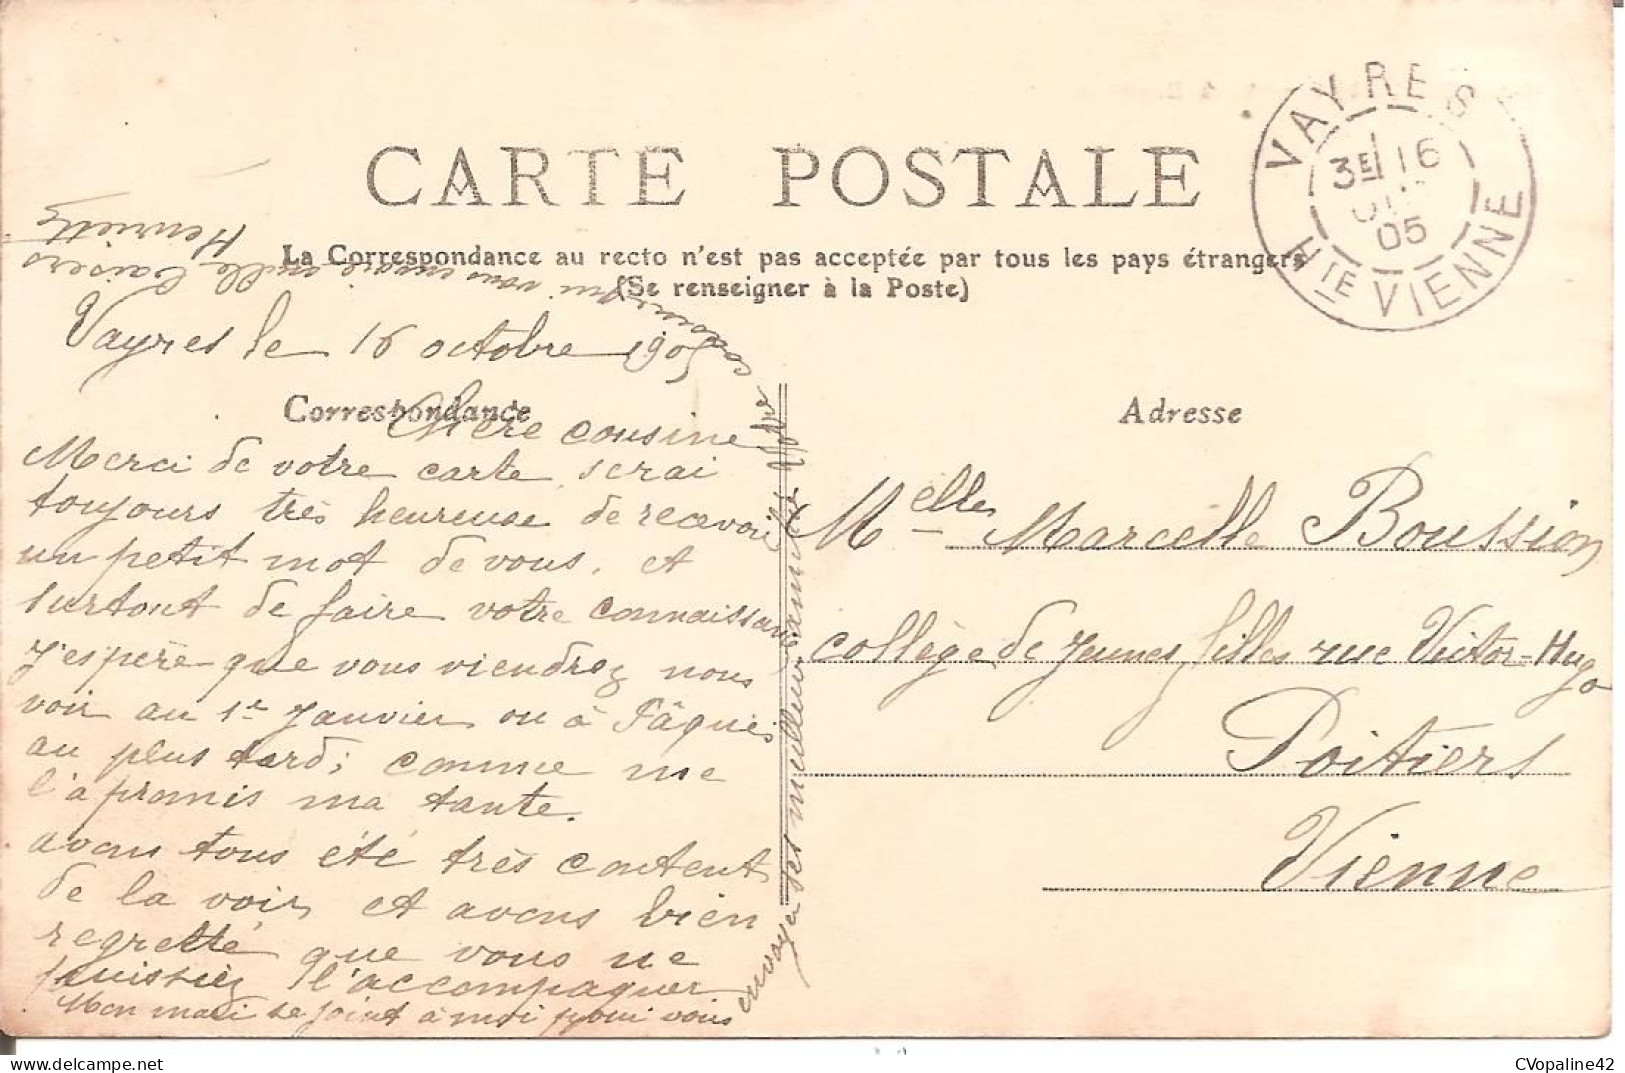 CARTE POSTALE
La Correspondance au recto n'est pas acceptée par tous les pays étrangers
(Se renseigner à la Poste)
VAYRES
3E 16
05
HTE VIENNE
Vayres le 16 octobre 1905
Correspondance
Chère cousine
Merci de votre carte, serai
toujours très heureuse de recevoir
un petit mot de vous, et
surtout de faire votre connaissance
J'espère que vous viendrez nous
voir au 1er Janvier ou à Pâques
au plus tard; comme me
l'a promis ma tante.
avons tous été très content
de la voir, et avons bien
regretté que vous ne
puissiez l'accompagner
Mon mari se joint à moi pour vous
envoyer ses meilleurs amitiés Votre cousine
qui vous envoie mille baisers
Henriette
Adresse
Melle Marcelle Boussion
collège de jeunes filles rue Victor-Hugo
Poitiers
Vienne
CVopaline42